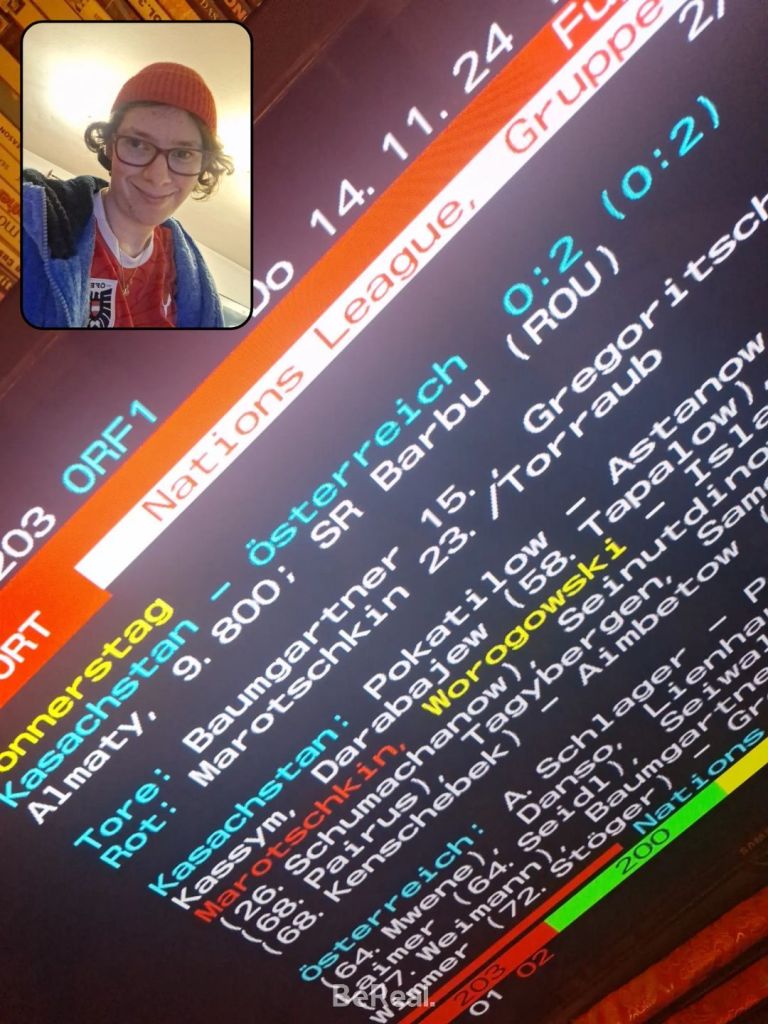 203 ORF1 Do 14.11.24
ORT
Nations League, Gruppe
2/
Donnerstag
Kasachstan - Österreich 0:2 (0:2)
Almaty, 9.800; SR Barbu (ROU)
Tore: Baumgartner 15., Gregoritsch
Rot: Marotschkin 23./Torraub
Kasachstan: Pokatilow - Astanow
Kassym, Darabajew (58. Tapalow),
Marotschkin, Worogowski - Isla
(26. Schumachanow), Seinutdinow
(68. Pairus), Tagybergen, Sam
(68. Kenschebek) - Aimbetow (
Österreich: A. Schlager - P
(64. Mwene), Danso, Lienha
Laimer (64. Seidl), Seiwa
(77. Weimann), Baumgartne
Wimmer (72. Stöger) - Gr
203 200 Nations
01 02
BeReal.